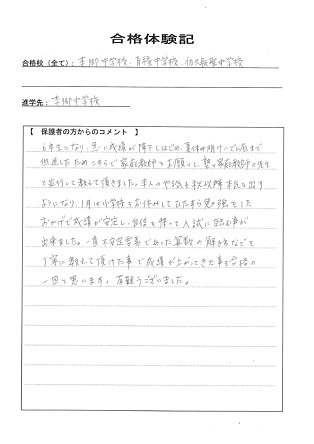 合格体験記
合格校(全て): 本郷中学校、青稜中学校、佐久長聖中学校
進学先: 本郷中学校
【 保護者の方からのコメント 】
6年生になり、急に成績が降下しはじめ、夏休み明けにどん底まで
低迷したため こちらで家庭教師をお願いし、塾と家庭教師の先生
と並行して教えて頂きました。本人のやる気も秋以降 本気を出す
ようになり、1月は小学校をお休みして ひたすら勉強をした
おかげで成績が安定し、自信を持って入試に臨む事が
出来ました。一番不安定要素であった算数の解き方などを
丁寧に教えて頂けた事で成績が上がってきた事も合格の
一因と思います。有難うございました。